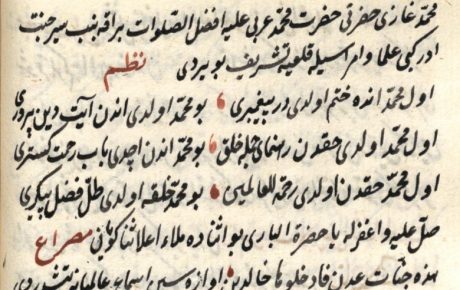 محمد غازی حضرتی حضرت محمد عربی علیه افضل الصلوات براقه بنب سیر جنت
ادر کبی علما و امرا سیله قلعیه تشریف بویردی نظم
اول محمد انده ختم اولدی در پیغمبری بو محمد اولدی اندن آیت دین پروری
اول محمد اولدی حقدن رهنمای جمله خلق بو محمد اندن اچدی باب رحمت کستری
اول محمد حقدن اولدی رحمة للعالمین بو محمد خلقه اولدی ظل فضل پیکری
صل علیه و اغفر له یا حضرة الباری بو اثناده ملاء اعلا ثنا کویانی مصراع
هذه جنات عدن فادخلوها خالدین اوازه سین اسماع عالمیانه